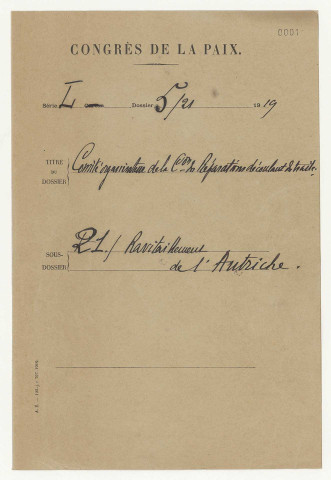 0001
CONGRÈS DE LA PAIX.
Série I — Dossier 5/21 1919
TITRE DU DOSSIER Comité organisation de la Con des Réparations découlant du traité.
SOUS-DOSSIER 21/ Ravitaillement
de l'Autriche.